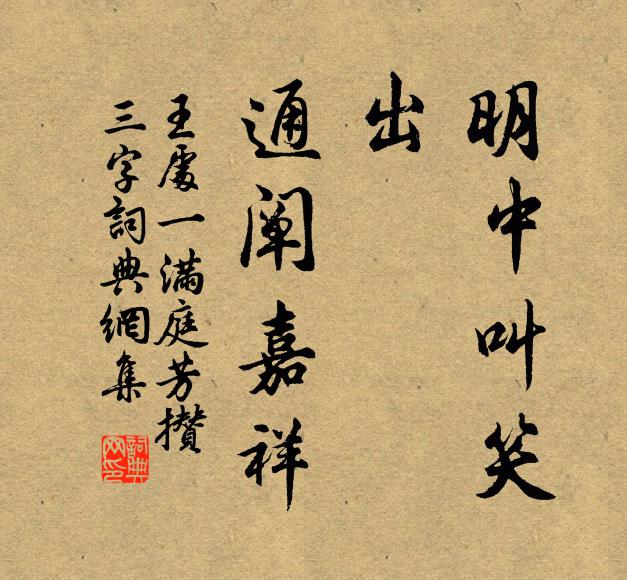 明中叫笑
出
通阐嘉祥
王處一满庭芳攒
三字詞典網集
詞典网印